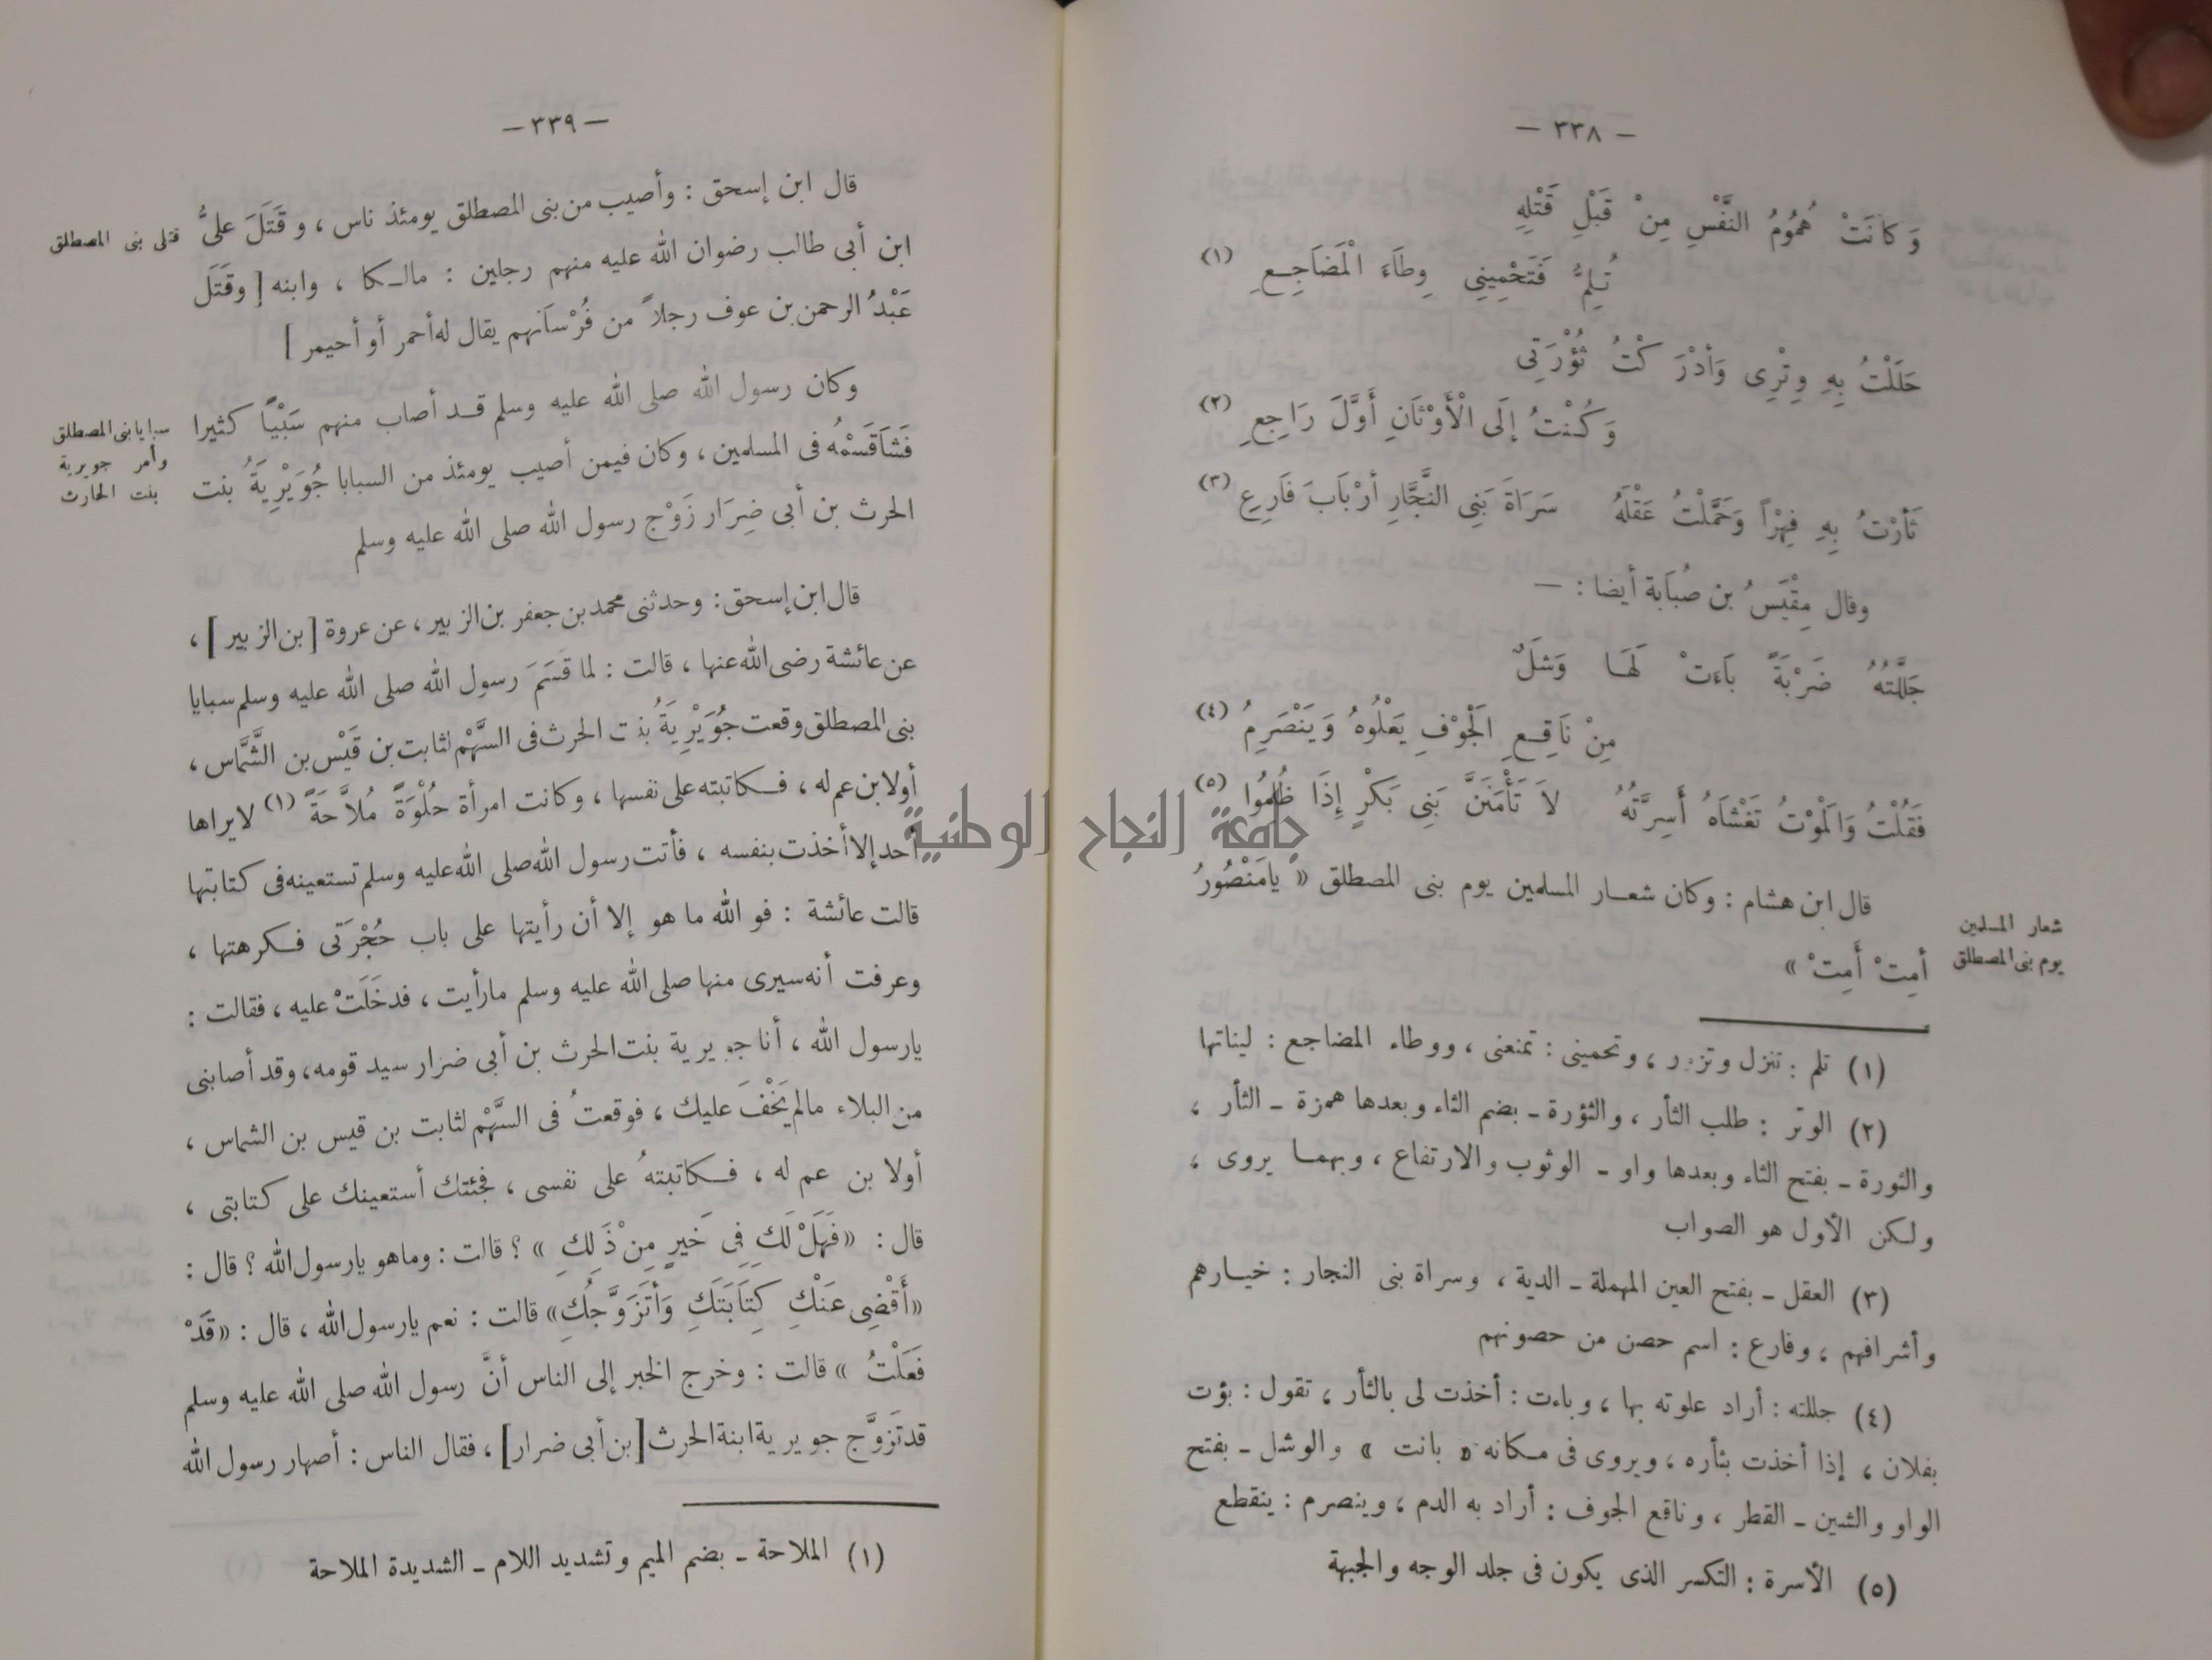 — ٣٣٨ —
وَكَانَتْ هُمُومُ النَّفْسِ مِنْ قَبْلِ قَتْلِهِ
تُلِمُّ فَتَحْمِينِي وِطَاءَ الْمَضَاجِعِ (١)
حَلَلْتُ بِهِ وِتْرِى وَأَدْرَكْتُ ثُؤْرَتِى
وَكُنْتُ إِلَى الْأَوْثَانِ أَوَّلَ رَاجِعِ (٢)
ثَأَرْتُ بِهِ فِهْرًا وَحَمَّلْتُ عَقْلَهُ سَرَاةَ بَنِى النَّجَّارِ أَرْبَابَ فَارِعِ (٣)
وقال مِقْيَسُ بن صُبَابَة أيضا : —
جَلَّلْتُهُ ضَرْبَةً بَاءَتْ لَهَا وَشَلٌ
مِنْ نَاقِعِ الْجَوْفِ يَعْلُوهُ وَيَنْصَرِمُ (٤)
فَقُلْتُ وَالْمَوْتُ تَغْشَاهُ أَسِرَّتُهُ لاَ تَأْمَنَنَّ بَنِى بَكْرٍ إِذَا ظُلِمُوا (٥)
قال ابن هشام : وكان شعار المسلمين يوم بنى المصطلق « يامَنْصُورُ
أَمِتْ أَمِتْ »
شعار المسلمين
يوم بنى المصطلق
(١) تلم : تنزل وتزور ، وتحمينى : تمنعنى ، ووطاء المضاجع : ليناتها
(٢) الوتر : طلب الثأر ، والثؤرة ـ بضم الثاء وبعدها همزة ـ الثأر ،
والثورة ـ بفتح الثاء وبعدها واو ـ الوثوب والارتفاع ، وبهما يروى ،
ولكن الأول هو الصواب
(٣) العقل ـ بفتح العين المهملة ـ الدية ، وسراة بنى النجار : خيارهم
وأشرافهم ، وفارع : اسم حصن من حصونهم
(٤) جللته : أراد علوته بها ، وباءت : أخذت لى بالثأر ، تقول : بؤت
بفلان ، إذا أخذت بثأره ، ويروى فى مكانه « بانت » والوشل ـ بفتح
الواو والشين ـ القطر ، وناقع الجوف : أراد به الدم ، وينصرم : ينقطع
(٥) الأسرة : التكسر الذى يكون فى جلد الوجه والجبهة
— ٣٣٩ —
قال ابن إسحق : وأصيب من بنى المصطلق يومئذ ناس ، وقَتَلَ علىُّ
ابن أبى طالب رضوان الله عليه منهم رجلين : مالكا ، وابنه [ وقَتَلَ
عَبْدُ الرحمن بن عوف رجلاً من فُرْسَانهم يقال له أحمر أو أحيمر ]
وكان رسول الله صلى الله عليه وسلم قد أصاب منهم سَبْيًا كثيرا
فَشَا قَسْمُه فى المسلمين ، وكان فيمن أصيب يومئذ من السبايا جُوَيْرِيَةُ بنت
الحرث بن أبى ضِرَار زَوْج رسول الله صلى الله عليه وسلم
قال ابن إسحق : وحدثنى محمد بن جعفر بن الزبير ، عن عروة [ بن الزبير ] ،
عن عائشة رضى الله عنها ، قالت : لما قَسَمَ رسول الله صلى الله عليه وسلم سبايا
بنى المصطلق وقعت جُوَيْرِيَةُ بنت الحرث فى السَّهْم لثابت بن قَيْس بن الشَّمَّاس ،
أولابن عم له ، فكاتبته على نفسها ، وكانت امرأة حُلْوَةً مُلاَّحَةً (١) لايراها
أحد إلا أخذت بنفسه ، فأتت رسول الله صلى الله عليه وسلم تستعينه فى كتابتها
قالت عائشة : فو الله ما هو إلا أن رأيتها على باب حُجْرَتى فكرهتها ،
وعرفت أنه سيرى منها صلى الله عليه وسلم مارأيت ، فدخَلَتْ عليه ، فقالت :
يارسول الله ، أنا جويرية بنت الحرث بن أبى ضرار سيد قومه ، وقد أصابنى
من البلاء مالم يَخْفَ عليك ، فوقعتُ فى السَّهْم لثابت بن قيس بن الشماس ،
أولا بن عم له ، فكاتبتهُ على نفسى ، فجئتك أستعينك على كتابتى ،
قال : « فَهَلْ لَكِ فِى خَيرٍ مِنْ ذَلِكِ » ؟ قالت : وماهو يارسول الله ؟ قال :
« أَقْضِى عَنْكِ كِتَابَتَكِ وَأَتَزَوَّجُكِ » قالت : نعم يارسول الله ، قال : « قَدْ
فَعَلْتُ » قالت : وخرج الخبر إلى الناس أنَّ رسول الله صلى الله عليه وسلم
قد تَزَوَّج جويرية ابنة الحرث [ بن أبى ضرار ] ، فقال الناس : أصهار رسول الله
قتلى بنى المصطلق
سبايا بنى المصطلق
وأمر جويرية
بنت الحارث
(١) الملاحة ـ بضم الميم وتشديد اللام ـ الشديدة الملاحة
جامعة النجاح الوطنية